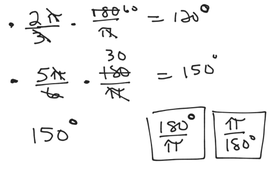 • 2π/3 · 180 60/π = 120°
• 5π/6 · 180 30/π = 150°
150° 180°/π π/180°